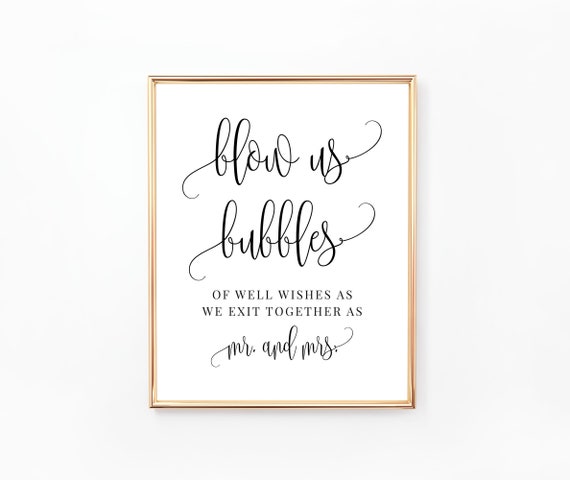 blow us
bubbles
OF WELL WISHES AS
WE EXIT TOGETHER AS
mr. and mrs.